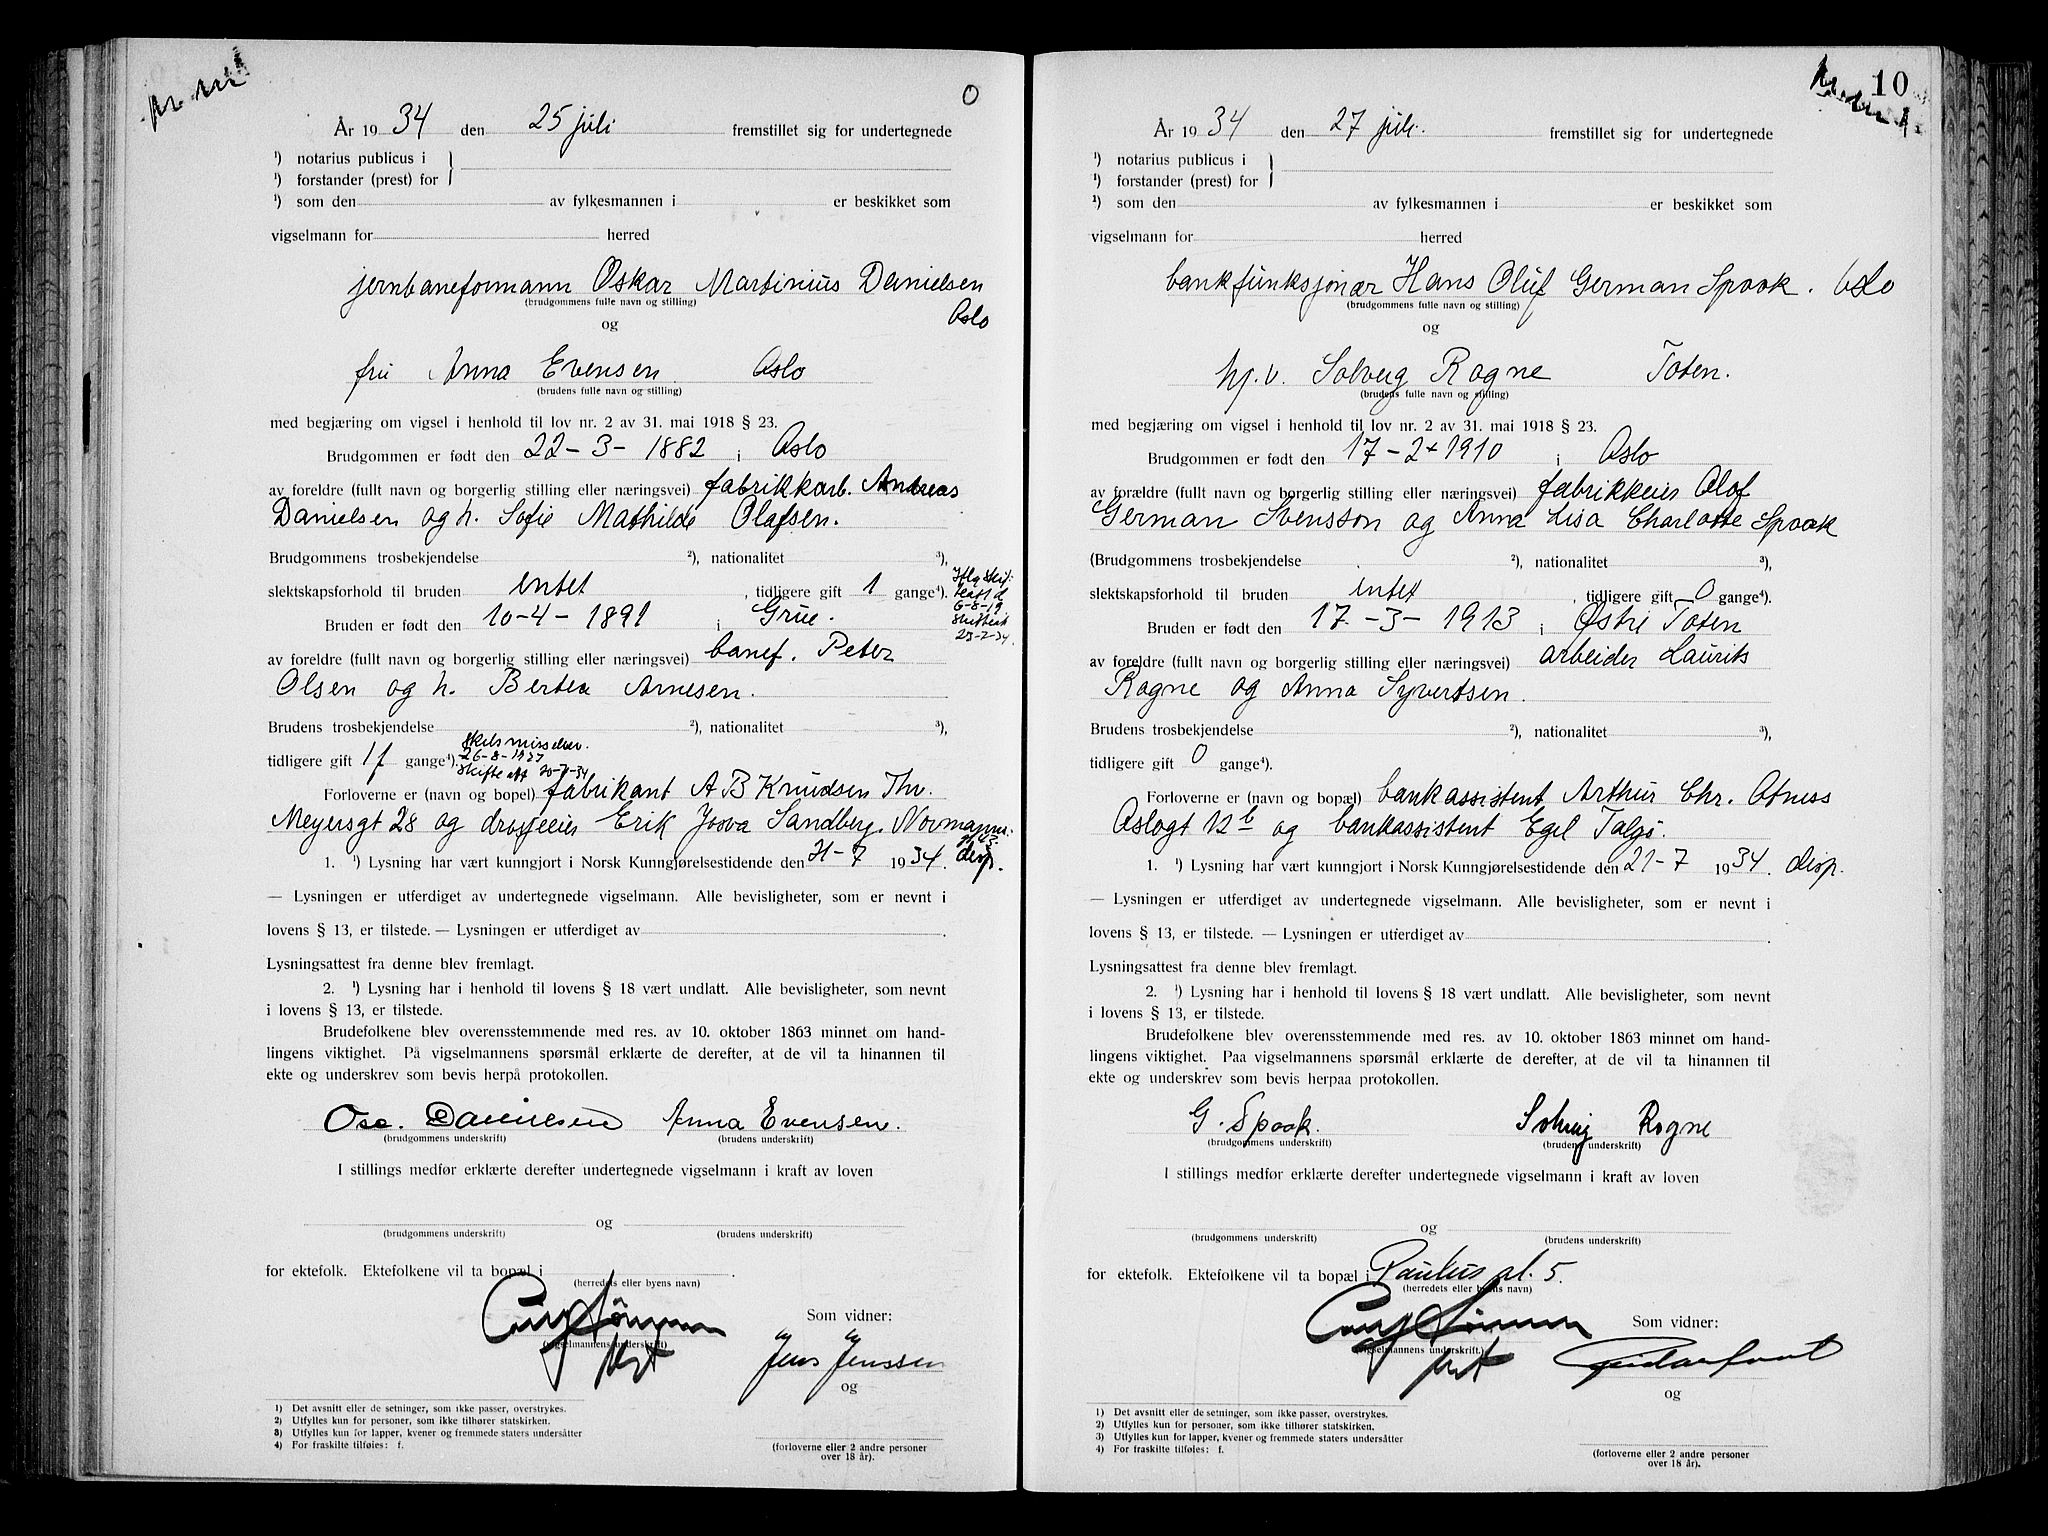 År 19 34 den 25 juli fremstillet sig for undertegnede
¹) notarius publicus i
¹) forstander (prest) for
¹) som den av fylkesmannen i er beskikket som
vigselmann for herred
jernbaneformann Oskar Martinius Danielsen
(brudgommens fulle navn og stilling)
Oslo
og
fru Anna Evensen Oslo
(brudens fulle navn og stilling)
med begjæring om vigsel i henhold til lov nr. 2 av 31. mai 1918 § 23.
Brudgommen er født den 22-3-1882 i Oslo
av foreldre (fullt navn og borgerlig stilling eller næringsvei) fabrikkarb. Andreas
Danielsen og h. Sofie Mathilde Olafsen.
Brudgommens trosbekjendelse ²), nationalitet ³),
slektskapsforhold til bruden intet , tidligere gift 1 gange⁴).
6-8-19
Bruden er født den 10-4-1891 i Grue.
av foreldre (fullt navn og borgerlig stilling eller næringsvei) banef. Peter
Olsen og h. Bertea Arnesen.
Brudens trosbekjendelse ²), nationalitet ³),
Skilsmissebev.
26-8-1927
tidligere gift 1 f gange⁴).
Skifte att
Forloverne er (navn og bopel) fabrikant A B Knudsen Thv.
Meyersgt 28 og drosjeeier Erik Josva Sandberg. Normanns
1. ¹) Lysning har vært kunngjort i Norsk Kunngjørelsestidende den 21-7 1934. disp.
— Lysningen er utferdiget av undertegnede vigselmann. Alle bevisligheter, som er nevnt i
lovens § 13, er tilstede. — Lysningen er utferdiget av .
Lysningsattest fra denne blev fremlagt.
2. ¹) Lysning har i henhold til lovens § 18 vært undlatt. Alle bevisligheter, som nevnt
i lovens § 13, er tilstede.
Brudefolkene blev overensstemmende med res. av 10. oktober 1863 minnet om hand-
lingens viktighet. På vigselmannens spørsmål erklærte de derefter, at de vil ta hinannen til
ekte og underskrev som bevis herpå protokollen.
Osc. Danielsen Anna Evensen.
(brudgommens underskrift) (brudens underskrift)
I stillings medfør erklærte derefter undertegnede vigselmann i kraft av loven
og
(brudgommens underskrift) (brudens underskrift)
for ektefolk. Ektefolkene vil ta bopæl i .
(herredets eller byens navn)
Som vidner:
(vigselmannens underskrift)
Jens Jenssen
og
1) Det avsnitt eller de setninger, som ikke passer, overstrykes.
2) Utfylles kun for personer, som ikke tilhører statskirken.
3) Utfylles kun for lapper, kvener og fremmede staters undersåtter
4) For fraskilte tilføies: f.
(forloverne eller 2 andre personer
over 18 år).
10
År 19 34 den 27 juli. fremstillet sig for undertegnede
¹) notarius publicus i
¹) forstander (prest) for
¹) som den av fylkesmannen i er beskikket som
vigselmann for herred
bankfunksjonær Hans Oluf German Spaak. Oslo
(brudgommens fulle navn og stilling)
og
hj.v. Solveig Rogne Toten.
(brudens fulle navn og stilling)
med begjæring om vigsel i henhold til lov nr. 2 av 31. mai 1918 § 23.
Brudgommen er født den 17-2-1910 i Oslo
av forældre (fullt navn og borgerlig stilling eller næringsvei) fabrikkeier Olof
German Svensson og Anna Lisa Charlotte Spaak
(Brudgommens trosbekjendelse ²), nationalitet ³),
slektskapsforhold til bruden intet , tidligere gift 0 gange⁴).
Bruden er født den 17-3-1913 i Østre Toten
av foreldre (fullt navn og borgerlig stilling eller næringsvei) arbeider Laurits
Rogne og Anna Syvertsen.
Brudens trosbekjendelse ²), nationalitet ³),
tidligere gift 0 gange⁴).
Forloverne er (navn og bopæl) bankassistent Arthur Chr. Otness
Oslogt 12 b og bankassistent Egil Talgø.
1. ¹) Lysning har vært kunngjort i Norsk Kunngjørelsestidende den 21-7 1934. disp.
— Lysningen er utferdiget av undertegnede vigselmann. Alle bevisligheter, som er nevnt i
lovens § 13, er tilstede. — Lysningen er utferdiget av .
Lysningsattest fra denne blev fremlagt.
2. ¹) Lysning har i henhold til lovens § 18 vært undlatt. Alle bevisligheter, som nevnt
i lovens § 13, er tilstede.
Brudefolkene blev overensstemmende med res. av 10. oktober 1863 minnet om hand-
lingens viktighet. Paa vigselmannens spørsmål erklærte de derefter, at de vil ta hinannen til
ekte og underskrev som bevis herpaa protokollen.
G. Spaak. Solveig Rogne
(brudgommens underskrift) (brudens underskrift)
I stillings medfør erklærte derefter undertegnede vigselmann i kraft av loven
og
(brudgommens underskrift) (brudens underskrift)
for ektefolk. Ektefolkene vil ta bopæl i Paulus pl. 5.
(herredets eller byens navn)
Som vidner:
(vigselmannens underskrift.)
og
1) Det avsnitt eller de setninger, som ikke passer, overstrykes.
2) Utfylles kun for personer, som ikke tilhører statskirken.
3) Utfylles kun for lapper, kvener og fremmede staters undersåtter
4) For fraskilte tilføies: f.
(forloverne eller 2 andre personer
over 18 år).